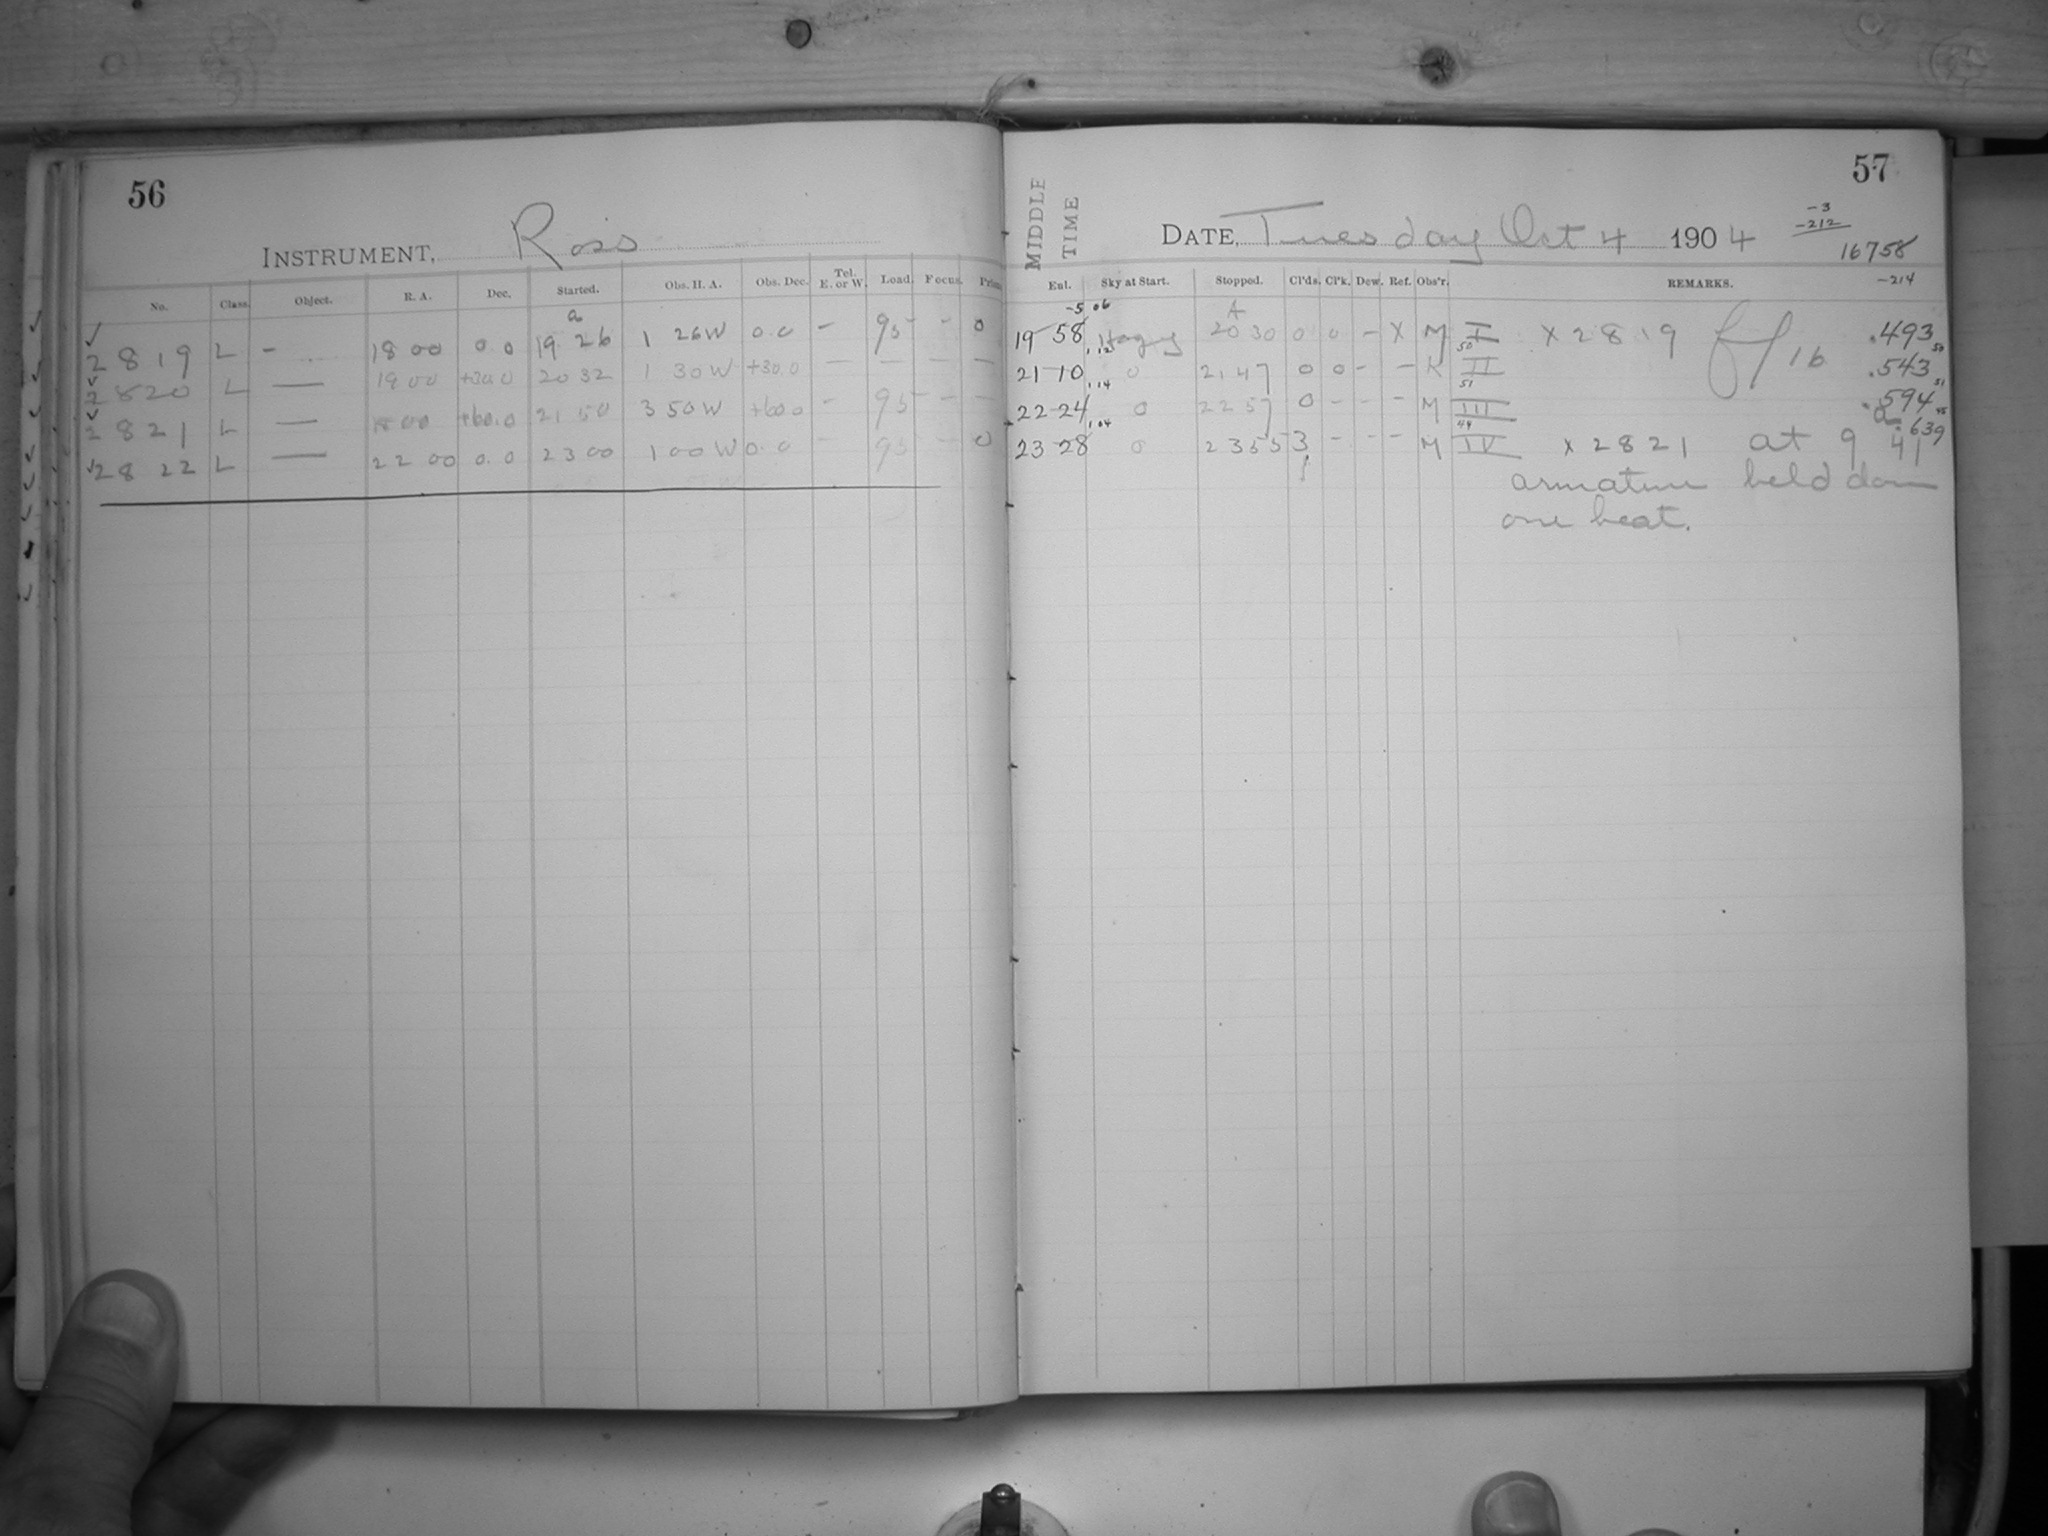 56
INSTRUMENT, Ross
No. Class. Object. R. A. Dec. Started. Obs. H. A. Obs. Dec. Tel. E. or W. Load. Focus.
2819 L - 18 00 0.0 19 26 1 26W 0.0 - 95 - - 0
2820 L — 19 00 +30.0 20 32 1 30W +30.0 — — — —
2821 L — 18 00 +60.0 21 50 3 50W +60.0 - 95 - -
2822 L — 22 00 0.0 23 00 1 00W 0.0 - 95 - 0
57
MIDDLE TIME
DATE, Tuesday Oct 4 1904
-3
-212
16758
-214
Ent. Sky at Start. Stopped. Cl'ds. Cl'k. Dew. Ref. Obs'r. REMARKS.
-5.06
19 58 Hazy 20 30 0 0 - X M I X 2819 16 .493
21 10 0 21 47 0 0 - - K II .543
22 24 0 22 57 0 - - - M III .594
23 28 0 23 55 3 - - - M IV X 2821 at 9 41 .639
armature held down
one beat.